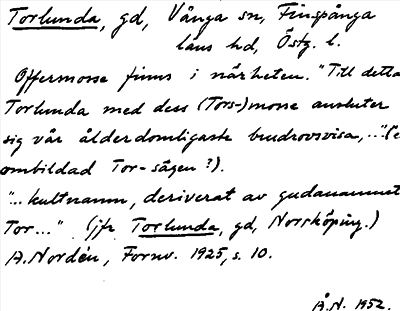 Torlunda, gd, Vånga sn, Finspånga
läns hd, Östg. l.
Offermosse finns i närheten. "Till detta
Torlunda med dess (Tors-)mosse ansluter
sig vår ålderdomligaste brudrovsvisa, ..."
ombildad Tor-sägen?).
"... kultnamn, deriverat av gudanamnet
Tor..." (jfr Torlunda, gd, Norrköping.)
A. Nordén, Fornv. 1925, s. 10.
Å.N. 1952.